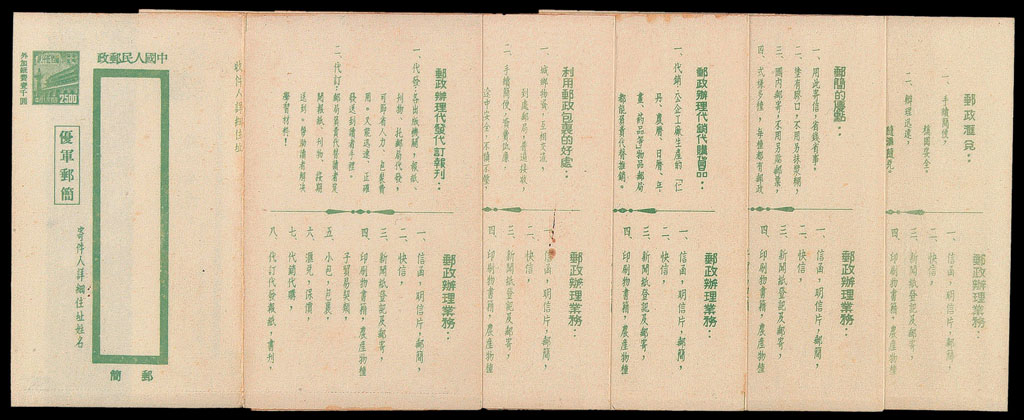 中國人民郵政
2500
外加紙費壹千圓
收件人詳細住址
優軍郵簡
寄件人詳細住址姓名
郵簡
郵政辦理代發代訂報刊：
一、代發：各出版機關，報紙、
刊物、托郵局代發，
可節省人力、包裝費
用。又能迅速、正確
發送到讀者手裡。
二、代訂：郵局
間報紙、刊物，按期
送到。勞動讀者解決
學習材料！
郵政辦理業務：
一、信函，明信片，郵簡，
二、快信，
三、新聞紙登記及郵寄，
四、印刷物書籍，農產物種
子貿易契類，
五、小包，包裹，
六、滙兌，保價，
七、代銷代購，
八、代訂代發報紙，書刊，
利用郵政包裹的好處：
一、城鄉物資，互相交流，
到處郵局，普遍接收，
二、手續簡便，資費低廉
途中安全，不損不壞，
郵政辦理業務：
一、信函，明信片，郵簡，
二、快信，
三、新聞紙登記及郵寄，
四、印刷物書籍，農產物種
郵政辦理代銷代購貨品：
一、代銷：公公工廠生產的「仁
丹、農曆、日曆、年
畫、药品等」物品郵局
都能資費代替推銷。
郵政辦理業務：
一、信函，明信片，郵簡，
二、快信，
三、新聞紙登記及郵寄，
四、印刷物書籍，農產物種
郵簡的優點：
一、用此寄信，省錢省事，
二、塗有膠口，不用另抹漿糊，
三、國內郵寄，不用另貼郵票，
四、式樣多種，每種都有郵政
郵政辦理業務：
一、信函，明信片，郵簡，
二、快信，
三、新聞紙登記及郵寄，
四、印刷物書籍，農產物種
郵政滙兌：
一、手續簡便，
穩固安全。
二、辦理迅速，
隨滙隨兌。
郵政辦理業務：
一、信函，明信片，郵簡，
二、快信，
三、新聞紙登記及郵寄，
四、印刷物書籍，農產物種